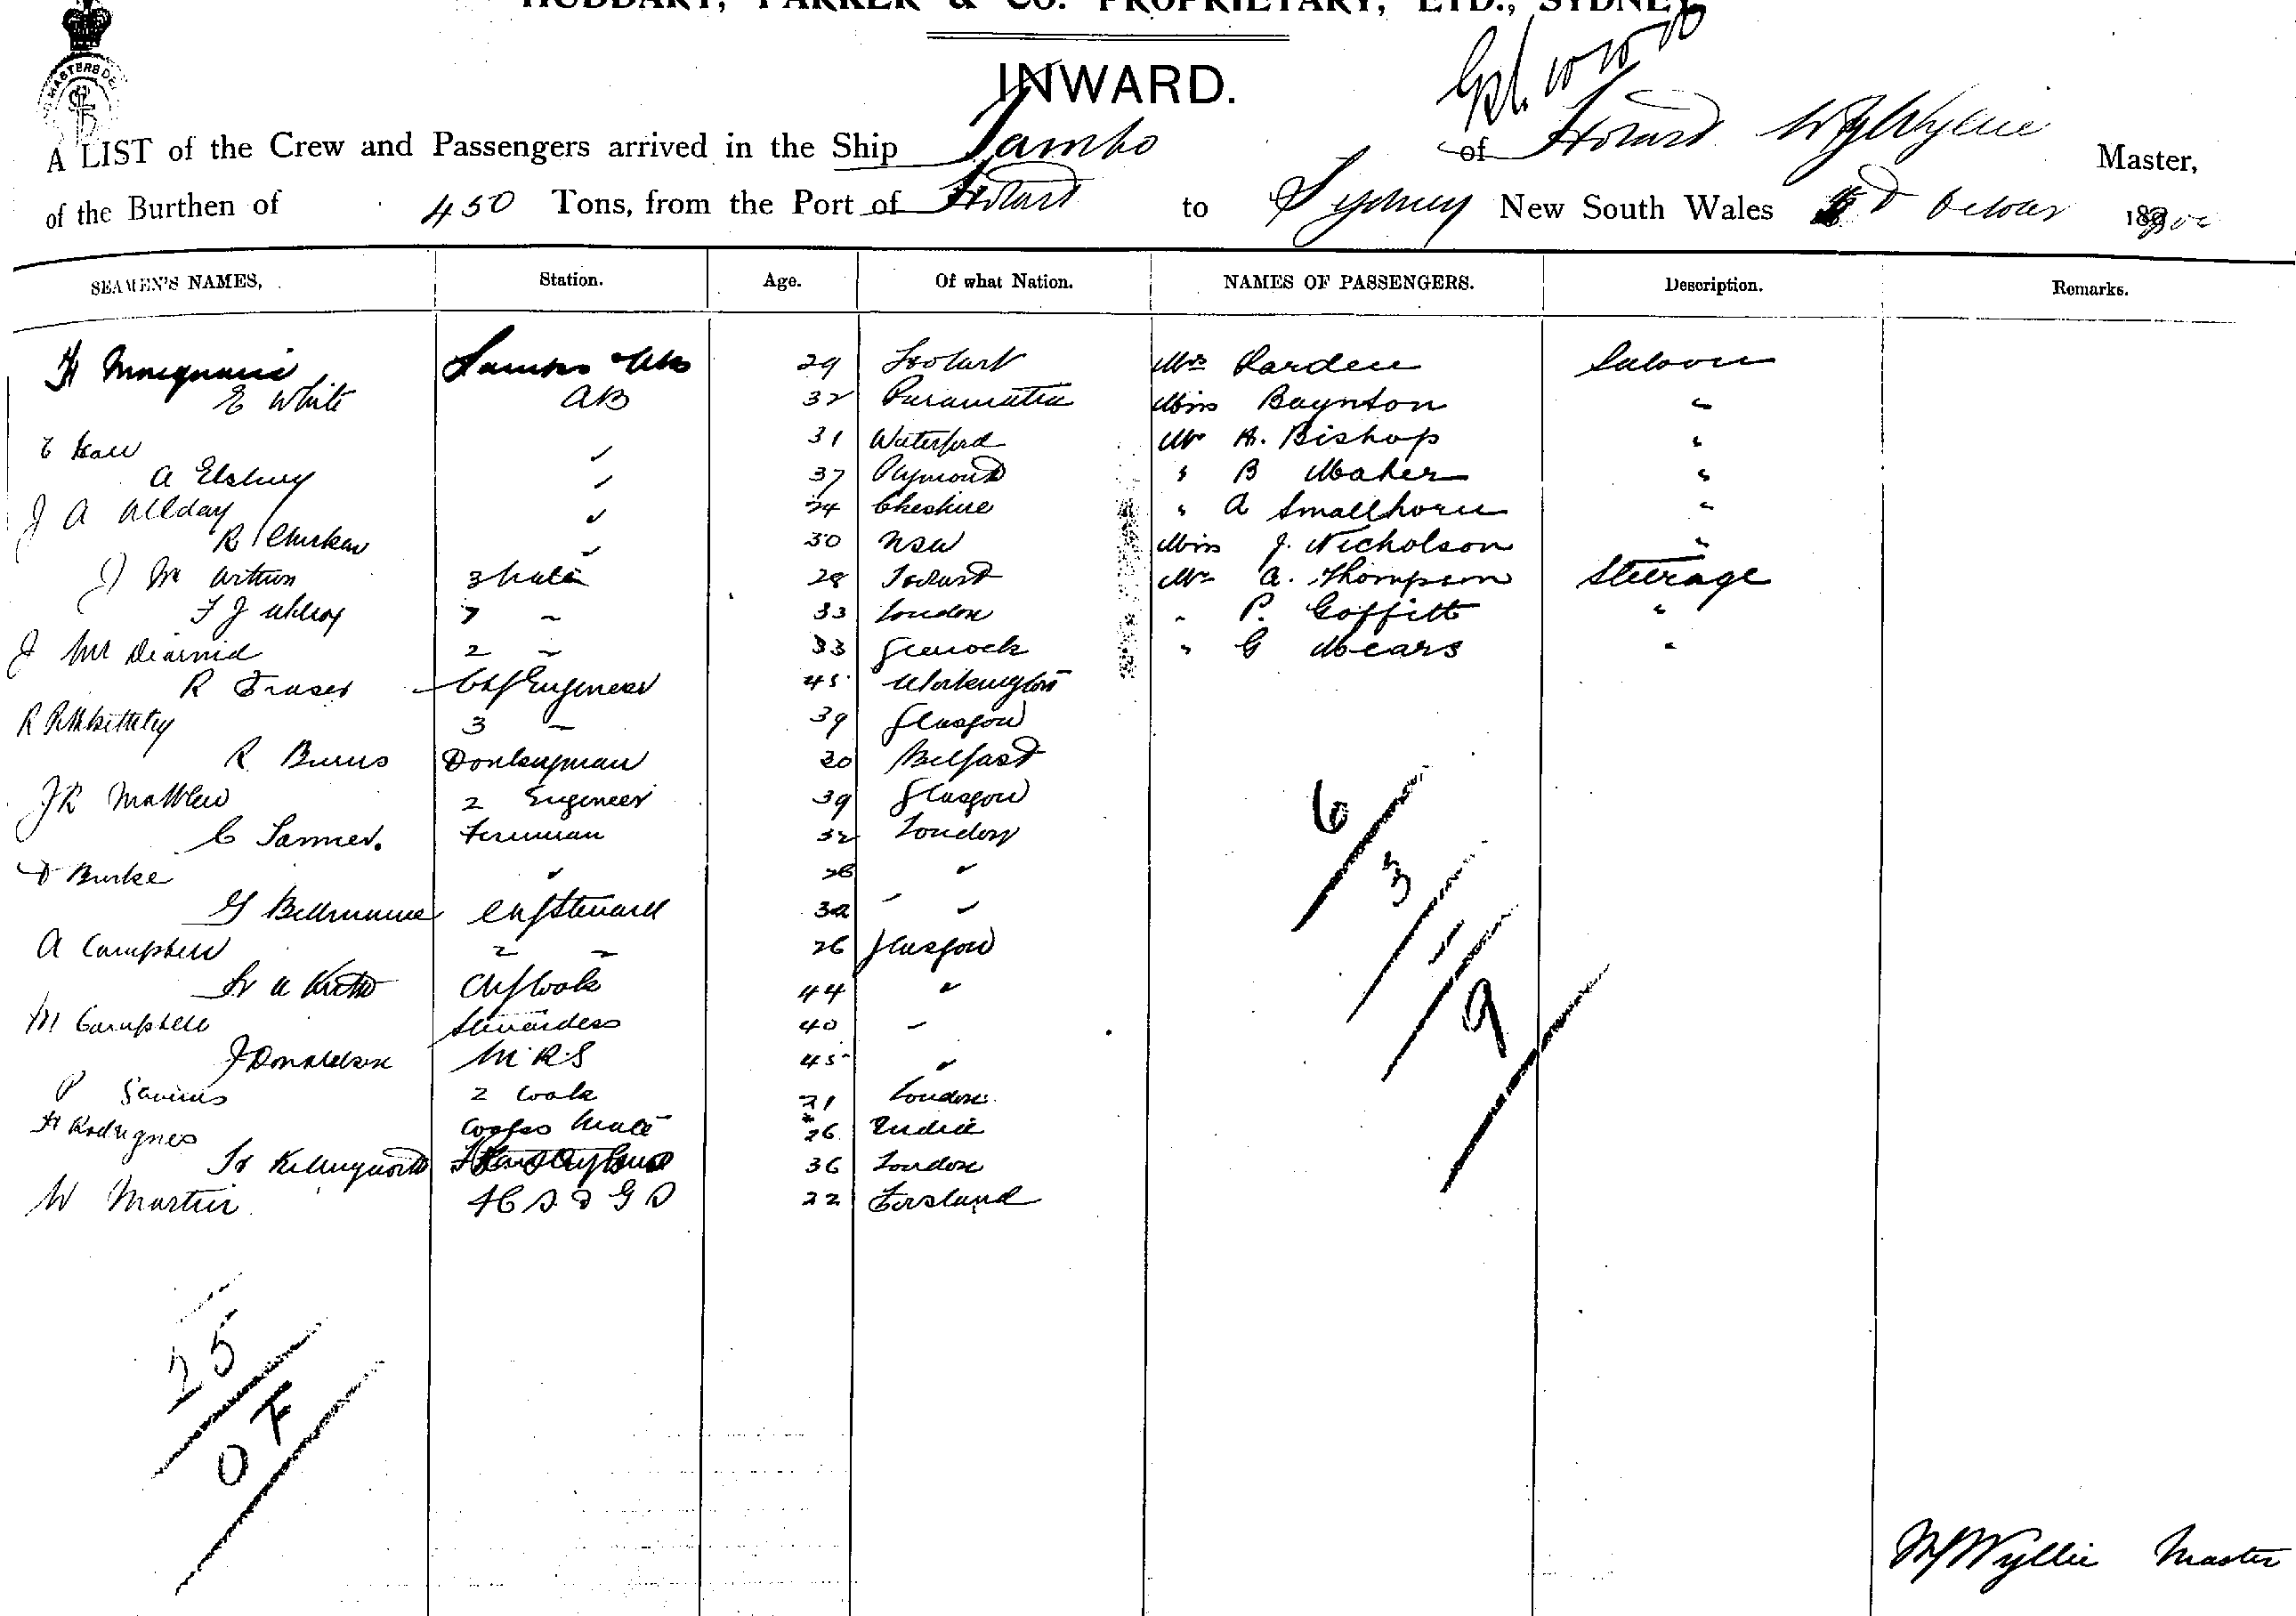 HUDDART, PARKER & Co. PROPRIETARY, LTD., SYDNEY
INWARD.
MASTERS DE
A LIST of the Crew and Passengers arrived in the Ship Tambo of Hobart W J Wyllie Master,
of the Burthen of 450 Tons, from the Port of Hobart to Sydney New South Wales
SEAMEN'S NAMES, Station. Age. Of what Nation. NAMES OF PASSENGERS. Description. Remarks.
H 29 Hobart Mrs Parden Saloon
E White AB 32 Paramatta Miss Baynton "
E Hall " 31 Waterford Mr H. Bishop "
A Elsbury " 37 Plymouth " B Maher "
J A Allday " 24 Cheshire " A Smallhorn "
R " 30 NSW Miss J. Nicholson "
J Mc Arthur 3 Mate 28 Hobart Mr A. Thompson Steerage
F J 33 London " P. Goffitt "
J Mc Diarmid 2 " 33 Greenock " G Mears "
R Fraser Chf Engineer 45 Workington
R 3 " 39 Glasgow
R Burns Donkeyman 30 Belfast
J R Matthew 2 Engineer 39 Glasgow
C Fireman 32 London
D Burke " 26 "
G Chf Steward 32 "
A Campbell 2 " 26 Glasgow
Chf Cook 44 "
M Campbell Stewardess 40 "
J Donaldson M.R.S 45 "
P 2 Cook 21 London
H Rodrigues Cooks Mate 26 India
H Killingworth 36 London
W Martin 22
6
3
9
25
0 F
W J Wyllie Master